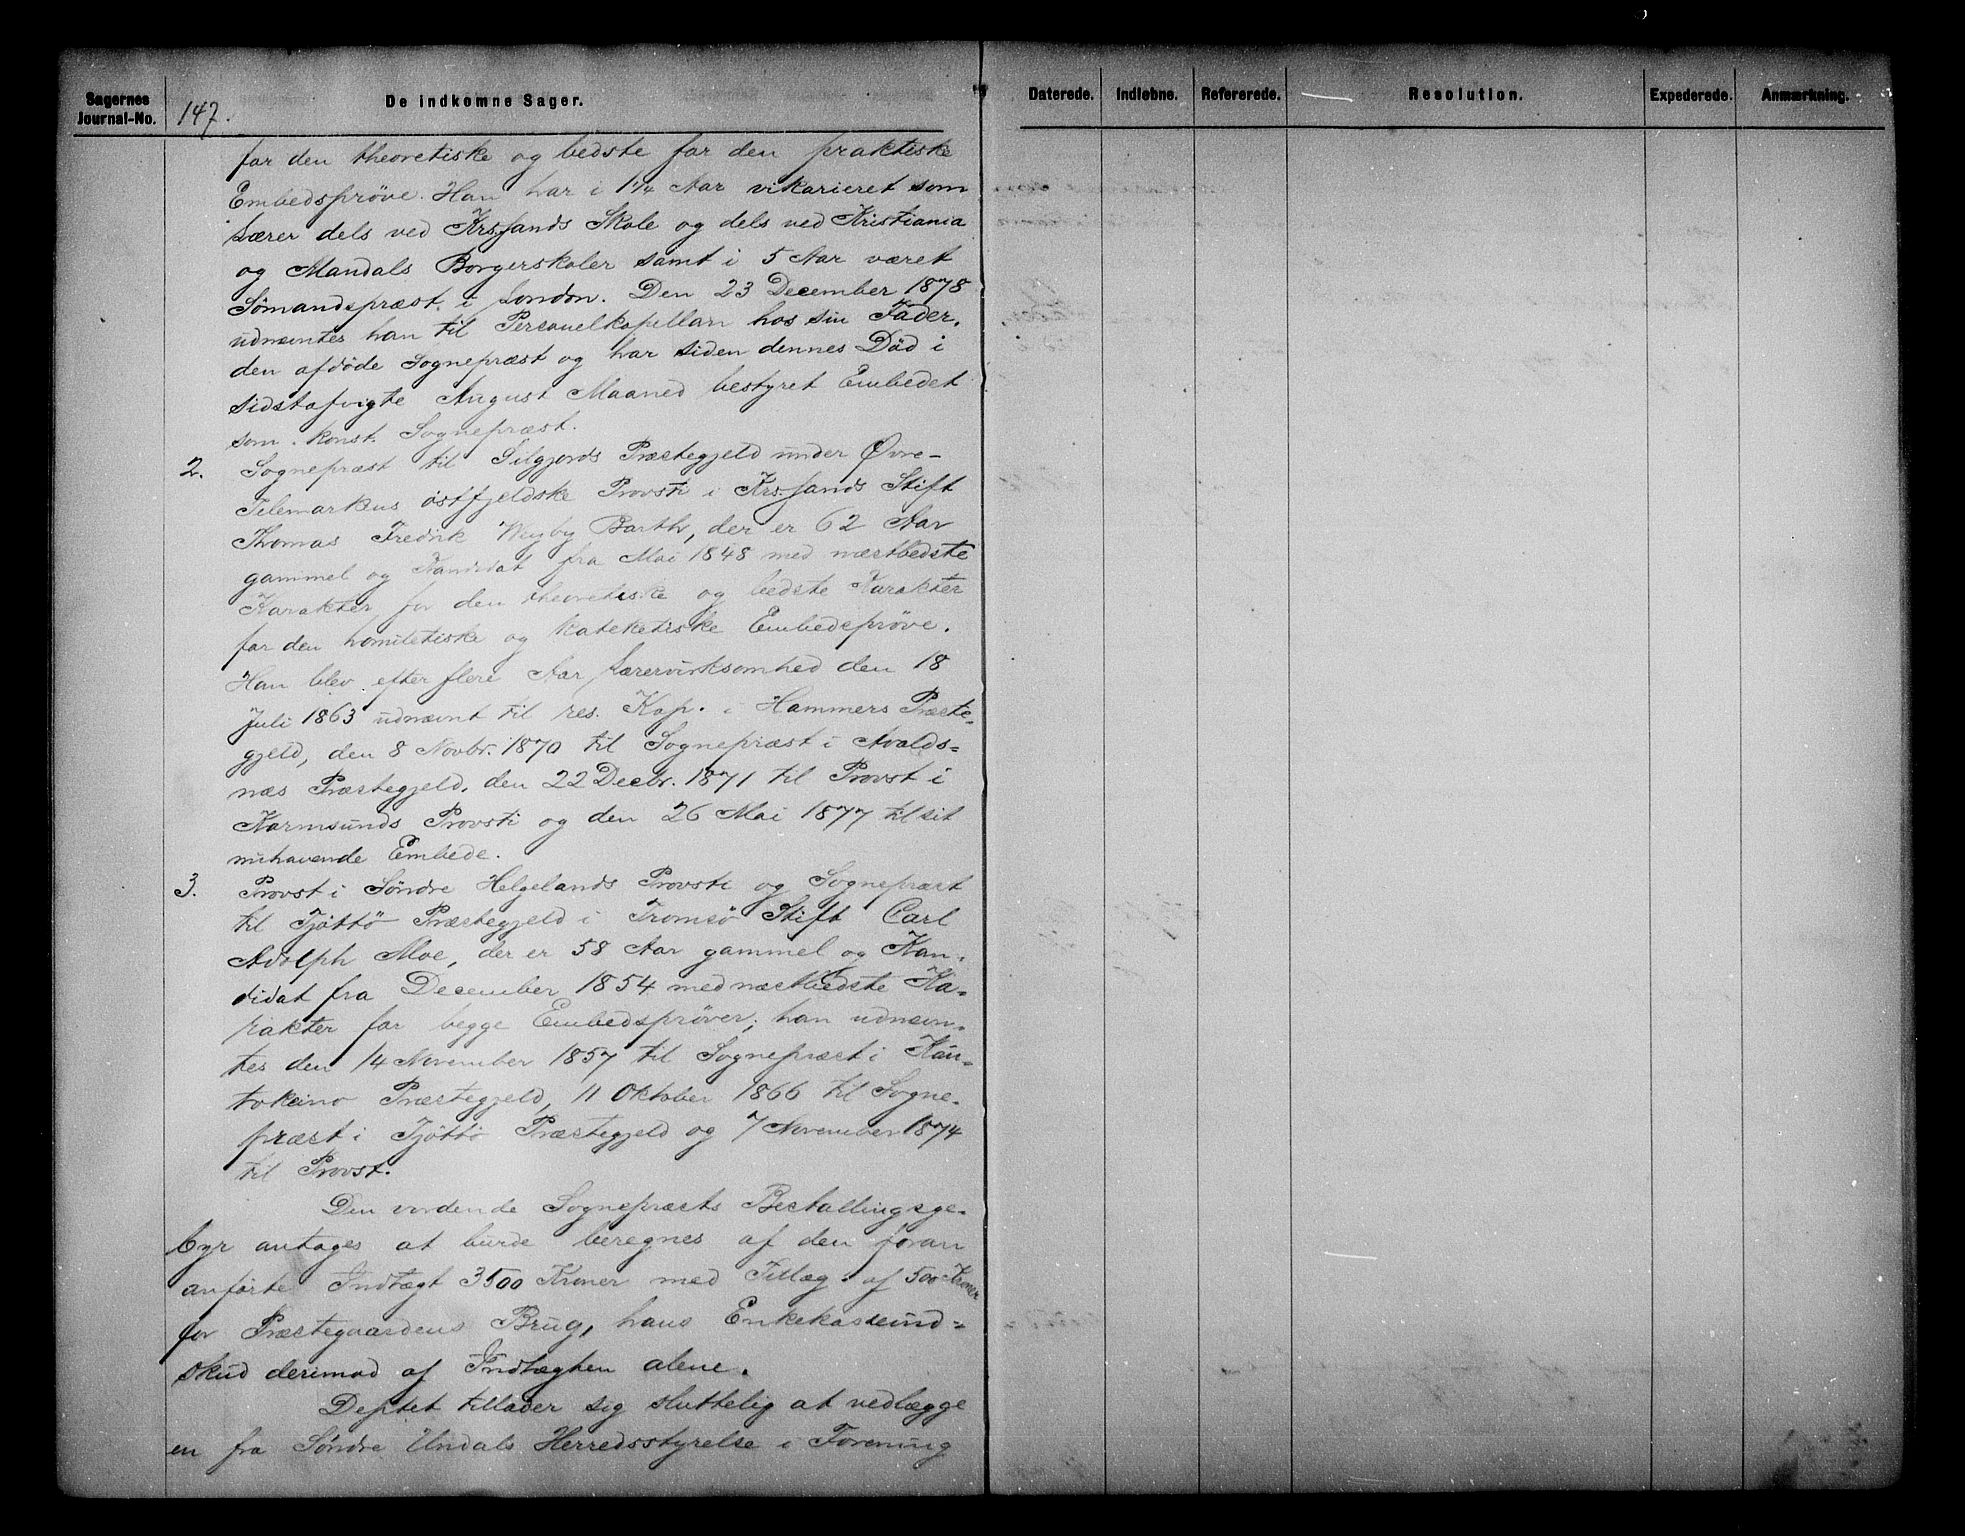 Sagernes
Journal-No.
147.
De indkomne Sager.
Daterede.
Indløbne.
Refererede.
Resolution.
Expederede.
Anmærkning.
for den theoretiske og bedste for den praktiske
Embedsprøve. Han har i 1¼ Aar vikarieret som
Lærer dels ved Krssands Skole og dels ved Kristiania
og Mandals Borgerskoler samt i 5 Aar været
Sømandspræst i London. Den 23 December 1878
udnævntes han til Personelkapellan hos sin Fader,
den afdøde Sognepræst og har siden dennes Død i
sidstafvigte August Maaned bestyret Embedet
som konst. Sognepræst.
2. Sognepræst til Silgjords Præstegjeld under Øvre-
Telemarkens østfjeldske Provsti i Krssands Stift
Thomas Fredrik Barth, der er 62 Aar
gammel og Kandidat fra Mai 1848 med næstbedste
Karakter for den theoretiske og bedste Karakter
for den homiletiske og kateketiske Embedsprøve.
Han blev efter flere Aar Lærervirksomhed den 18
Juli 1863 udnævnt til res. Kap. i Hammers Præste-
gjeld, den 8 Novbr. 1870 til Sognepræst i Avalds=
næs Præstegjeld, den 22 Decbr. 1871 til Provst i
Karmsunds Provsti og den 26 Mai 1877 til sit
nuhavende Embede.
3. Provst i Søndre Helgelands Provsti og Sognepræst
til Tjøttø Præstegjeld i Tromsø Stift Carl
Adolph Moe, der er 58 Aar gammel og Kan-
didat fra December 1854 med næstbedste Ka-
rakter for begge Embedsprøver; han udnævn-
tes den 14 November 1857 til Sognepræst i Kau-
tokeino Præstegjeld, 11 Oktober 1866 til Sogne-
præst i Tjøttø Præstegjeld og 7 November 1874
til Provst.
Den vordende Sognepræsts Bestallingsge-
byr antages at burde beregnes af den foran
anførte Indtægt 3500 Kroner med Tillæg af 500 Kroner
for Præstegaardens Brug, hans Enkekasseind=
skud derimod af Indtægten alene.
Deptet tillader sig sluttelig at vedlægge
en fra Søndre Undals Herredsstyrelse i Forening